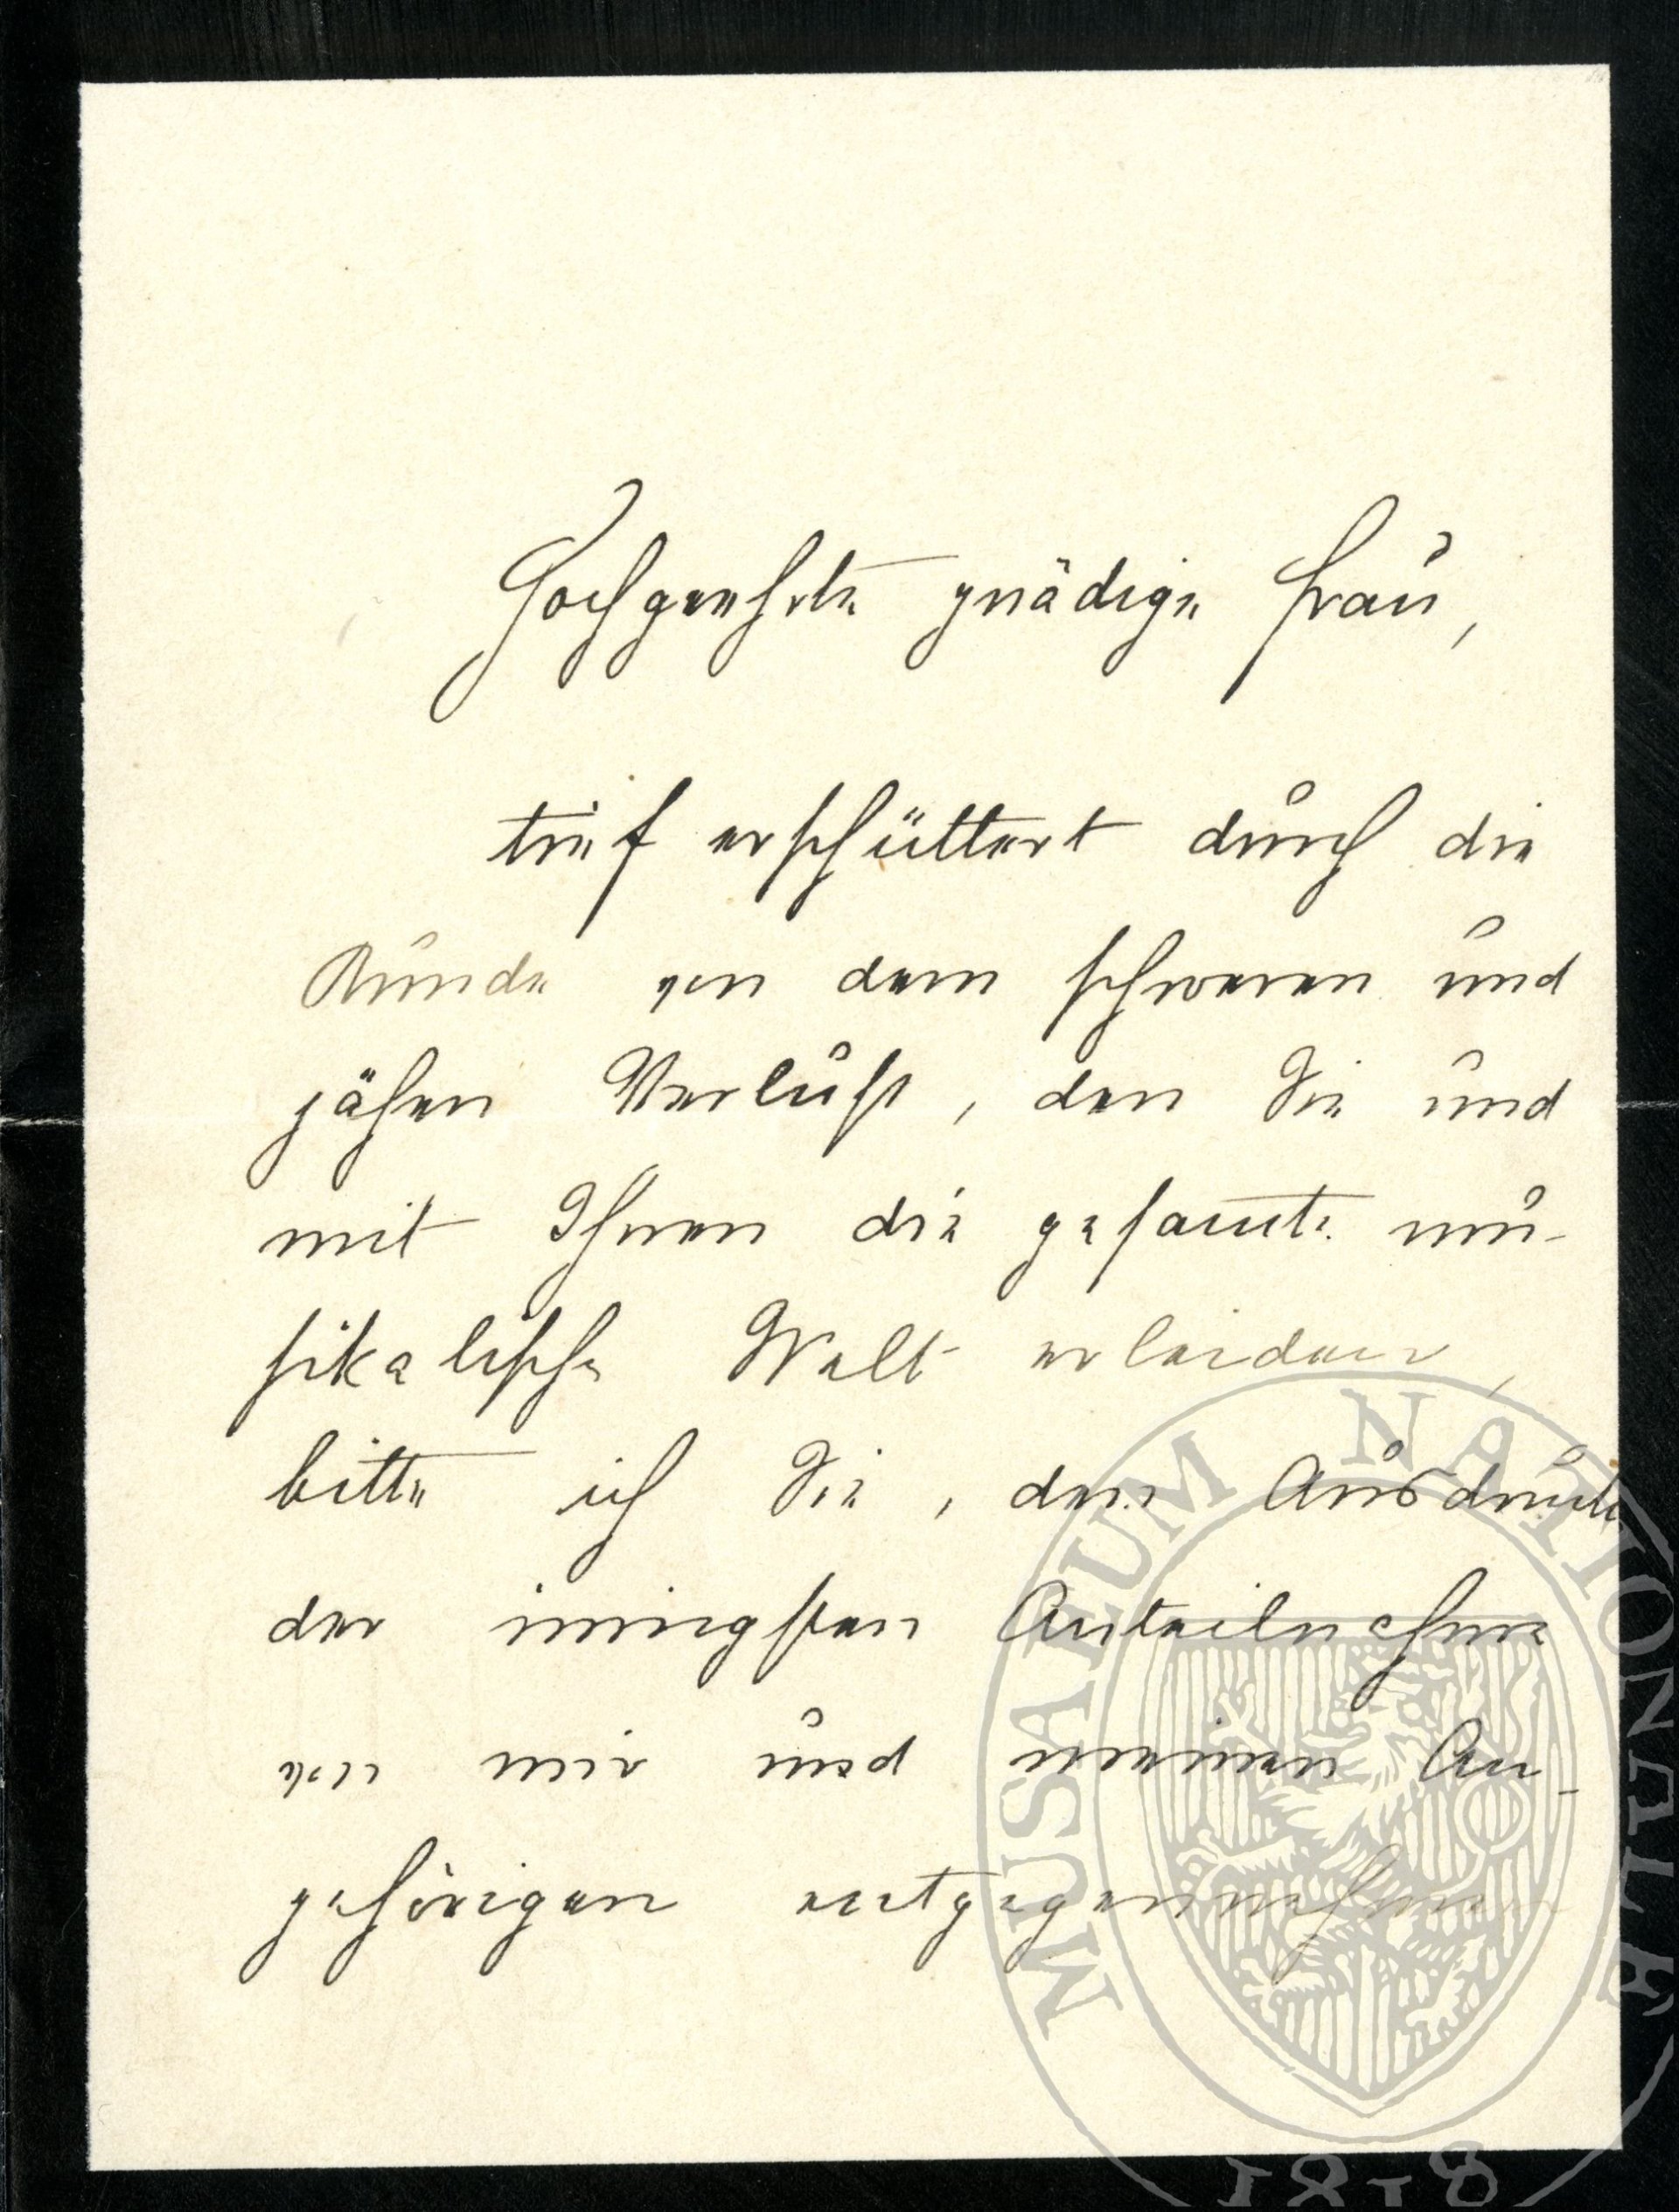 Hochgeehrte gnädige Frau,
tief erschüttert durch die
Kunde von dem schweren und
jähen Verlust, den Sie und
mit Ihnen die gesamte mu-
sikalische Welt erleiden,
bitte ich Sie, den Ausdruck
der innigsten Anteilnahme
von mir und meinen An-
gehörigen entgegennehmen
MUSAEUM NATIONALE
1818